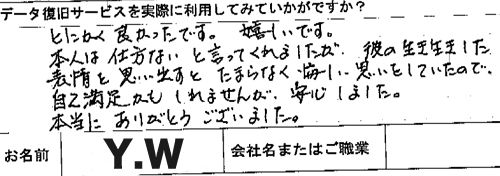 データ復旧サービスを実際に利用してみていかがですか？
とにかく良かったです。 嬉しいです。
本人は仕方ないと言ってくれましたが、彼の生き生きした
表情を思い出すとたまらなく悔しい思いをしていたので、
自己満足かもしれませんが、安心しました。
本当にありがとうございました。
お名前 Y.W 会社名またはご職業